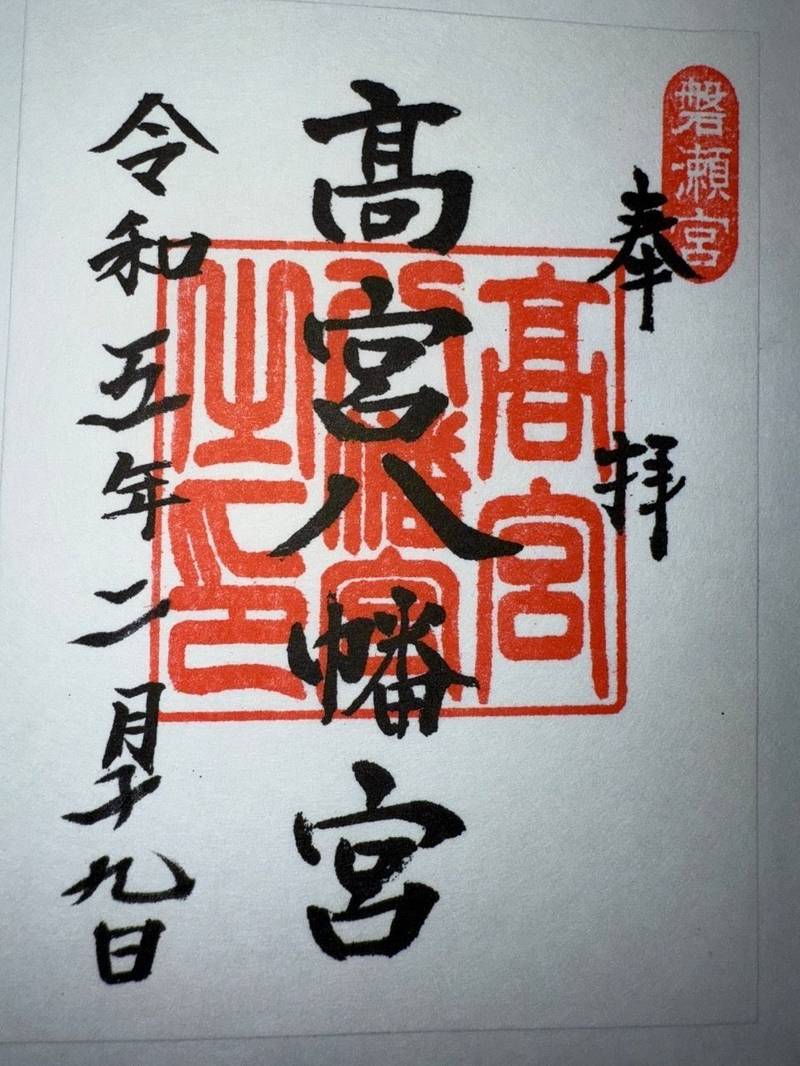 磐瀬宮
奉拝
髙宮八幡宮
髙宮
八幡宮
之印
令和五年二月十九日